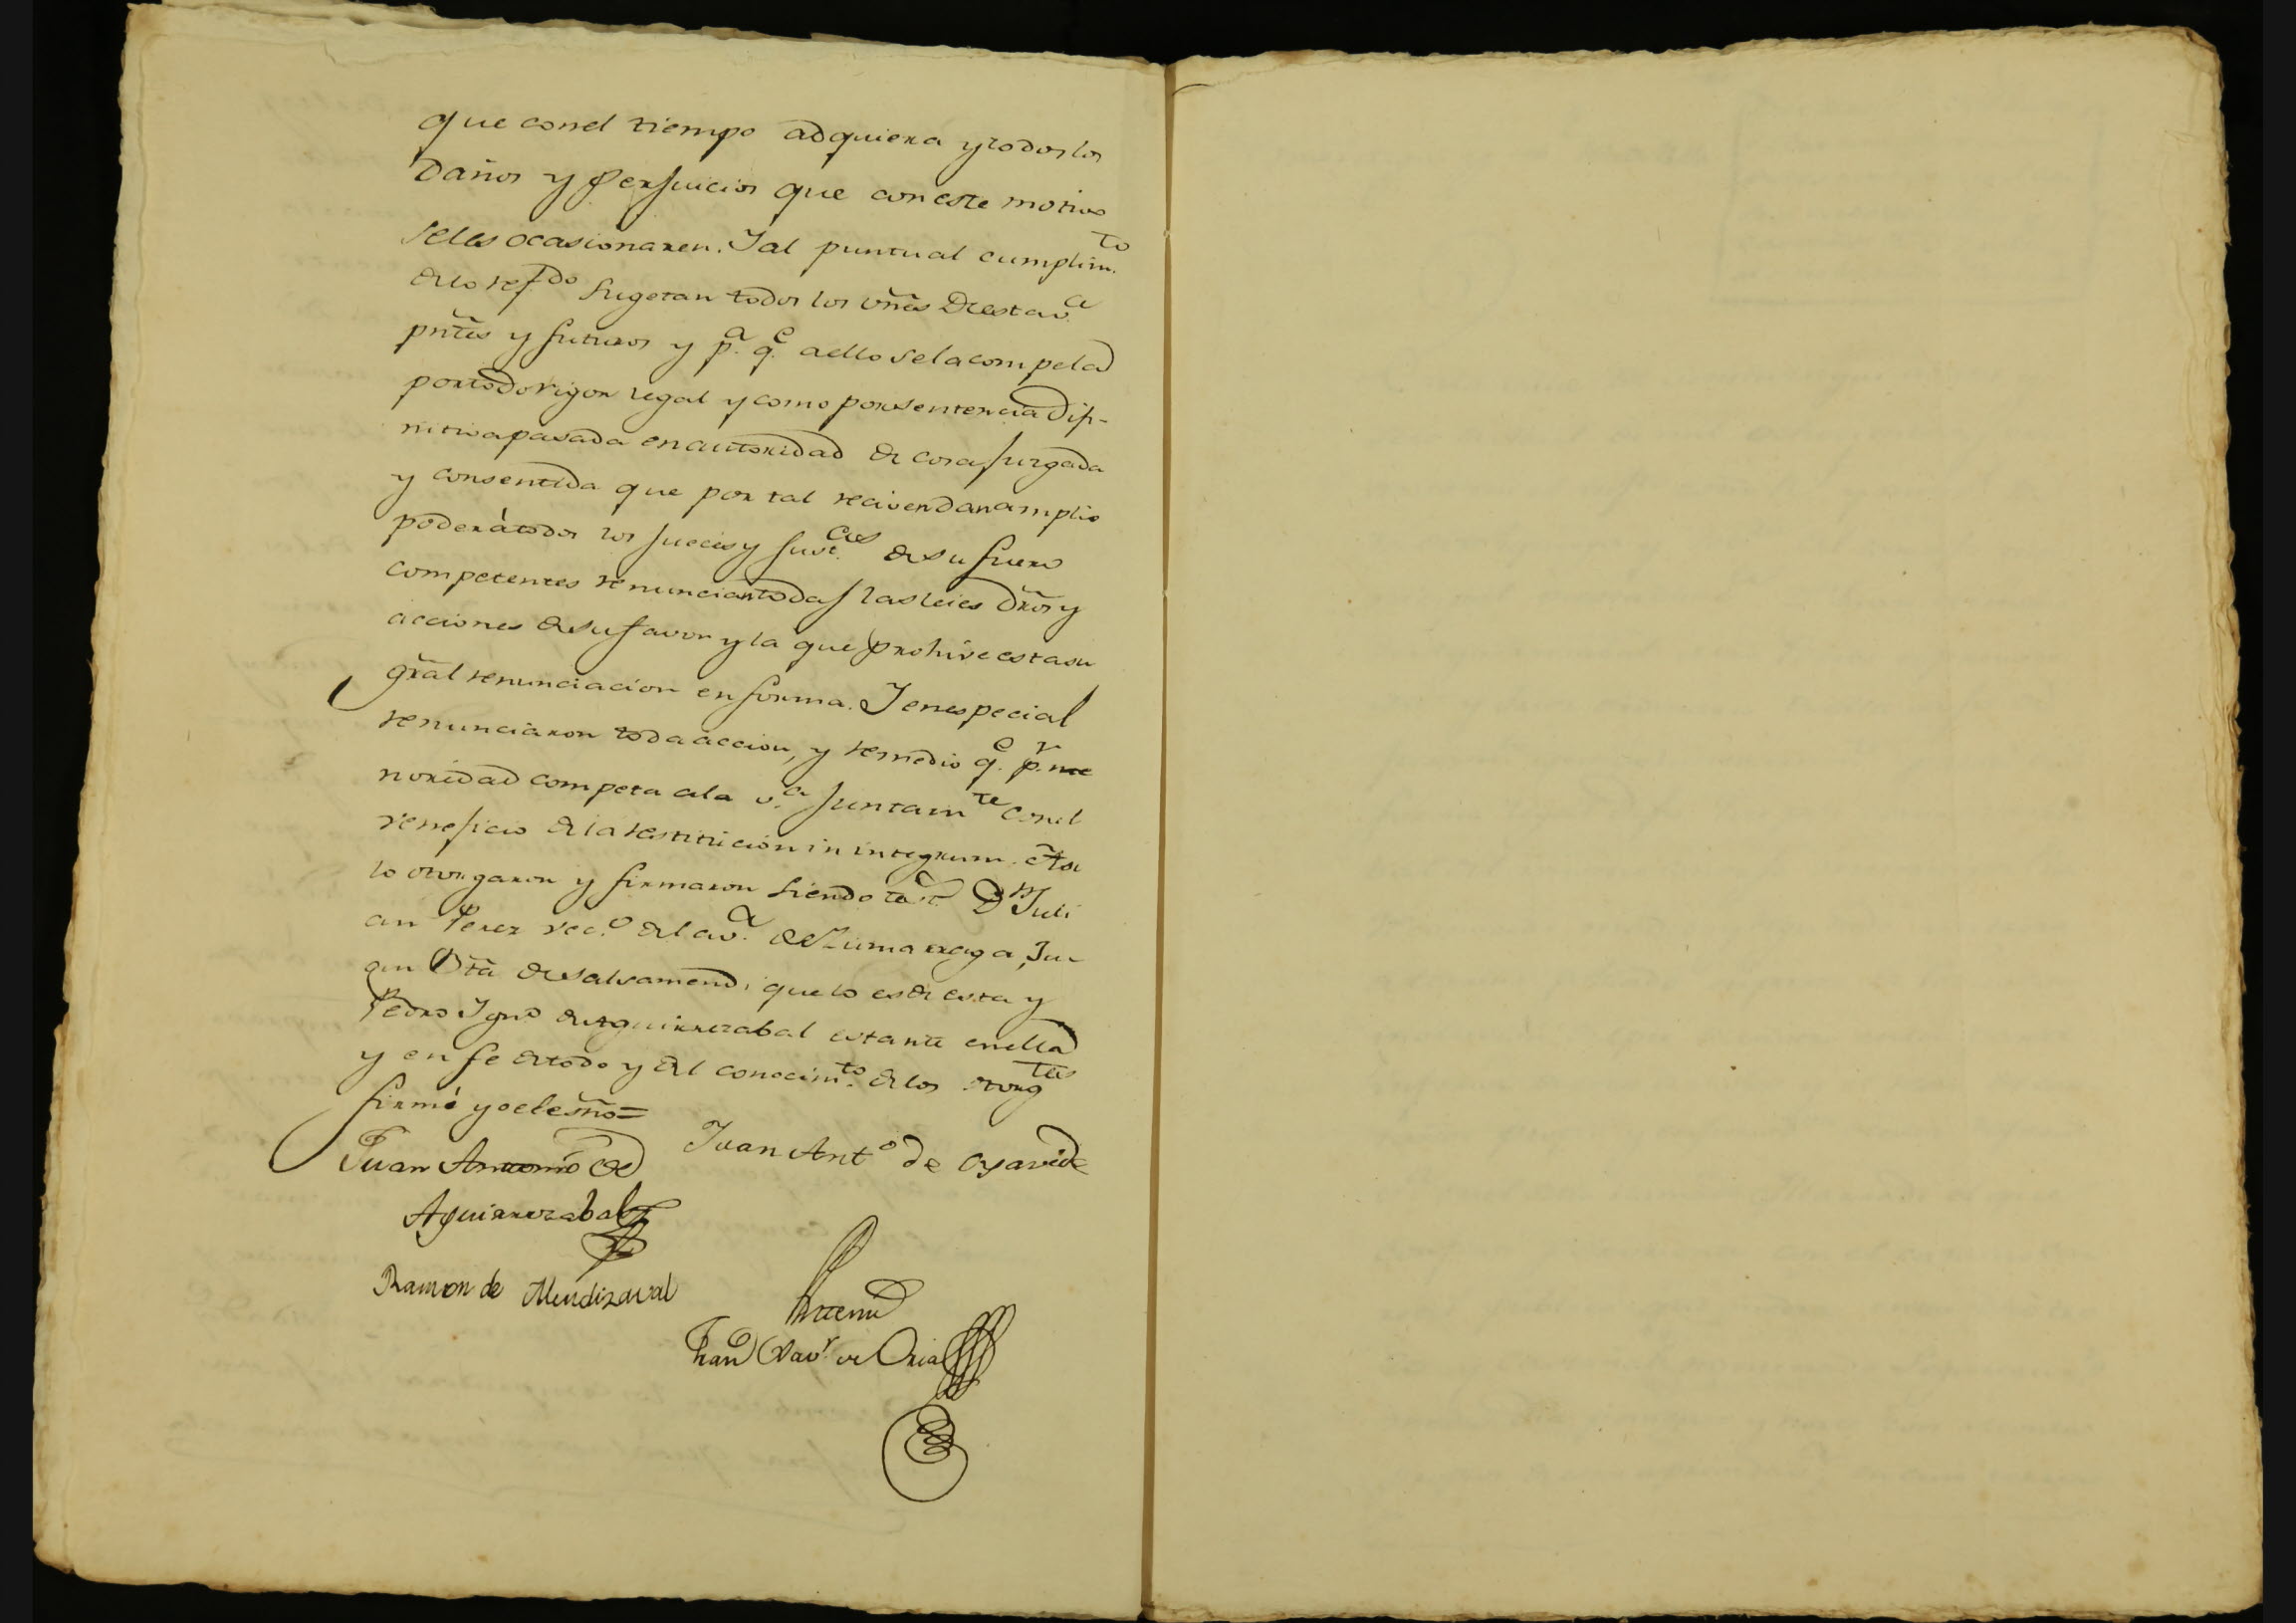 que conel tiempo adquiera y todos los
Daños y Perjuicios que coneste motivo
seles ocasionaren. Y al puntual cumplim.to
de lo ref.do sugetan todos los vñes de esta v.a
pñtes y futuros y p.a q.e aello se la compela
portodo rigor legal y como por sentencia difi-
nitiva pasada en autoridad de cosa Juzgada
y consentida que por tal reciven dan amplio
poder á todos los Jueces y Just.cias de su fuero
competentes renuncian todas las leies dr̃os y
acciones de su favor y la que prohive esta su
gr̃al renunciacion en forma. Y en especial
renunciaron toda accion, y remedio q.e p.r me
noridad competa a la v.a Juntam.te conel
veneficio de la restitucion in integrum. Asi
lo otorgaron y firmaron siendo test.s D.n Juli
an Perez vec.o de la v.a de Zumarraga, Ju-
an Bta de Salsamendi que lo es de esta y
Pedro Ign.o de Aguirrezabal estante en ella
y en fe de todo y del conocim.to de los otorg.tes
firmé yo el esño=
Juan Antonio de Juan Ant.o de Oyavide
Aguirrezabal
Ramon de Mendizaval
Antemi
Fran.co Xav.r de Oria